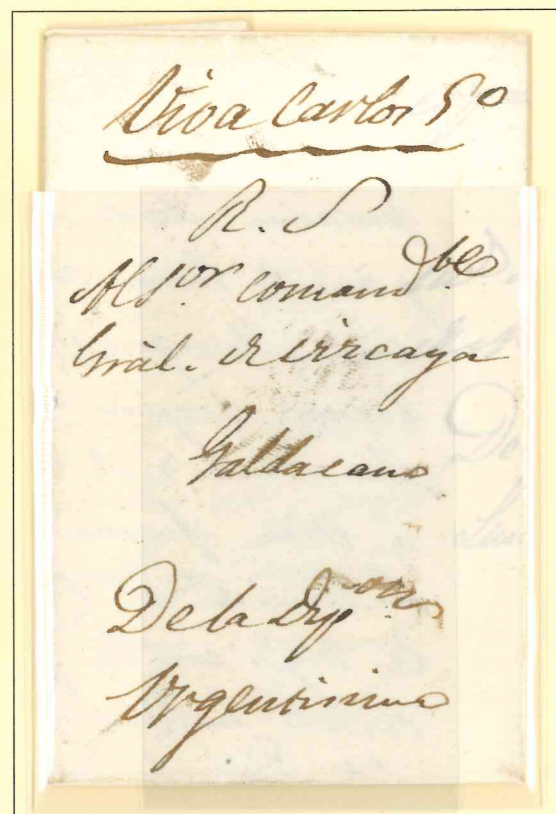 Viva Carlos 5º
R. S
Al Sor Comandte
Gral. de Vizcaya
Galdacano
De la Dipon
Urgentisimo